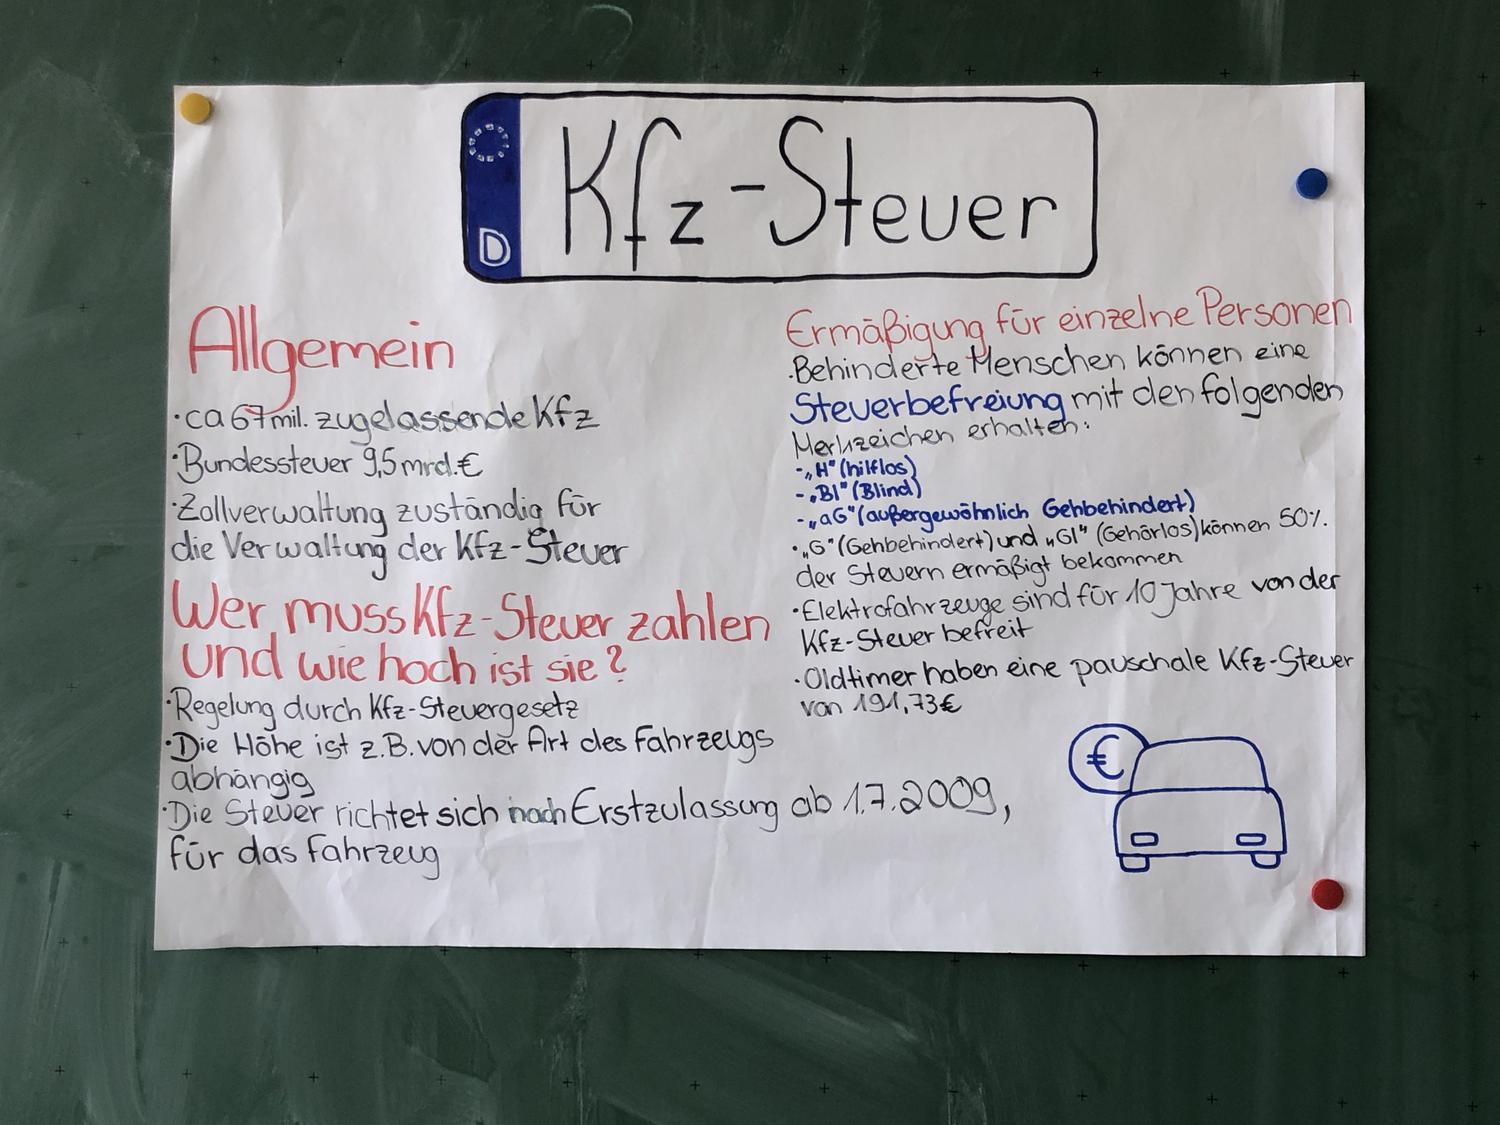 D
Kfz-Steuer
Allgemein
·ca 67 mil. zugelassende Kfz
·Bundessteuer 9,5 mrd.€
·Zollverwaltung zuständig für
die Verwaltung der Kfz-Steuer
Wer muss Kfz-Steuer zahlen
und wie hoch ist sie?
·Regelung durch Kfz-Steuergesetz
·Die Höhe ist z.B. von der Art des Fahrzeugs
abhängig
·Die Steuer richtet sich nach Erstzulassung ab 1.7.2009,
für das Fahrzeug
Ermäßigung für einzelne Personen
·Behinderte Menschen können eine
Steuerbefreiung mit den folgenden
Merkzeichen erhalten:
-„H" (hilflos)
-„Bl" (Blind)
-„aG" (außergewöhnlich Gehbehindert)
·„G" (Gehbehindert) und „Gl" (Gehörlos) können 50%
der Steuern ermäßigt bekommen
·Elektrofahrzeuge sind für 10 Jahre von der
Kfz-Steuer befreit
·Oldtimer haben eine pauschale Kfz-Steuer
von 191,73€
€